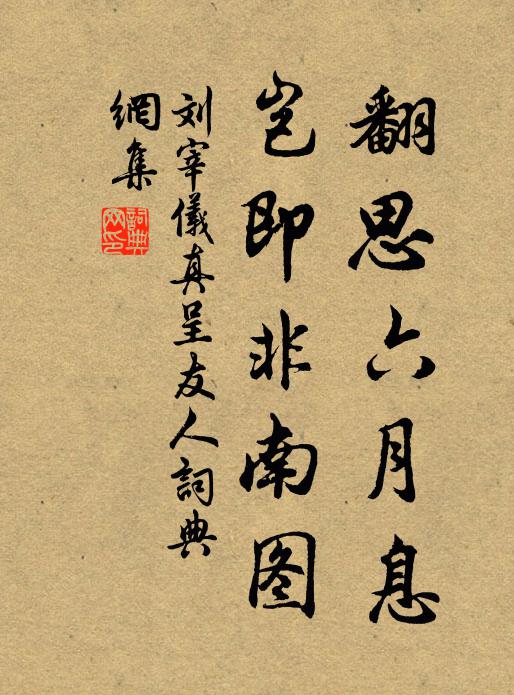 翻思六月息
岂即非南图
刘宰儀真呈友人詞典
網集
詞典
网印